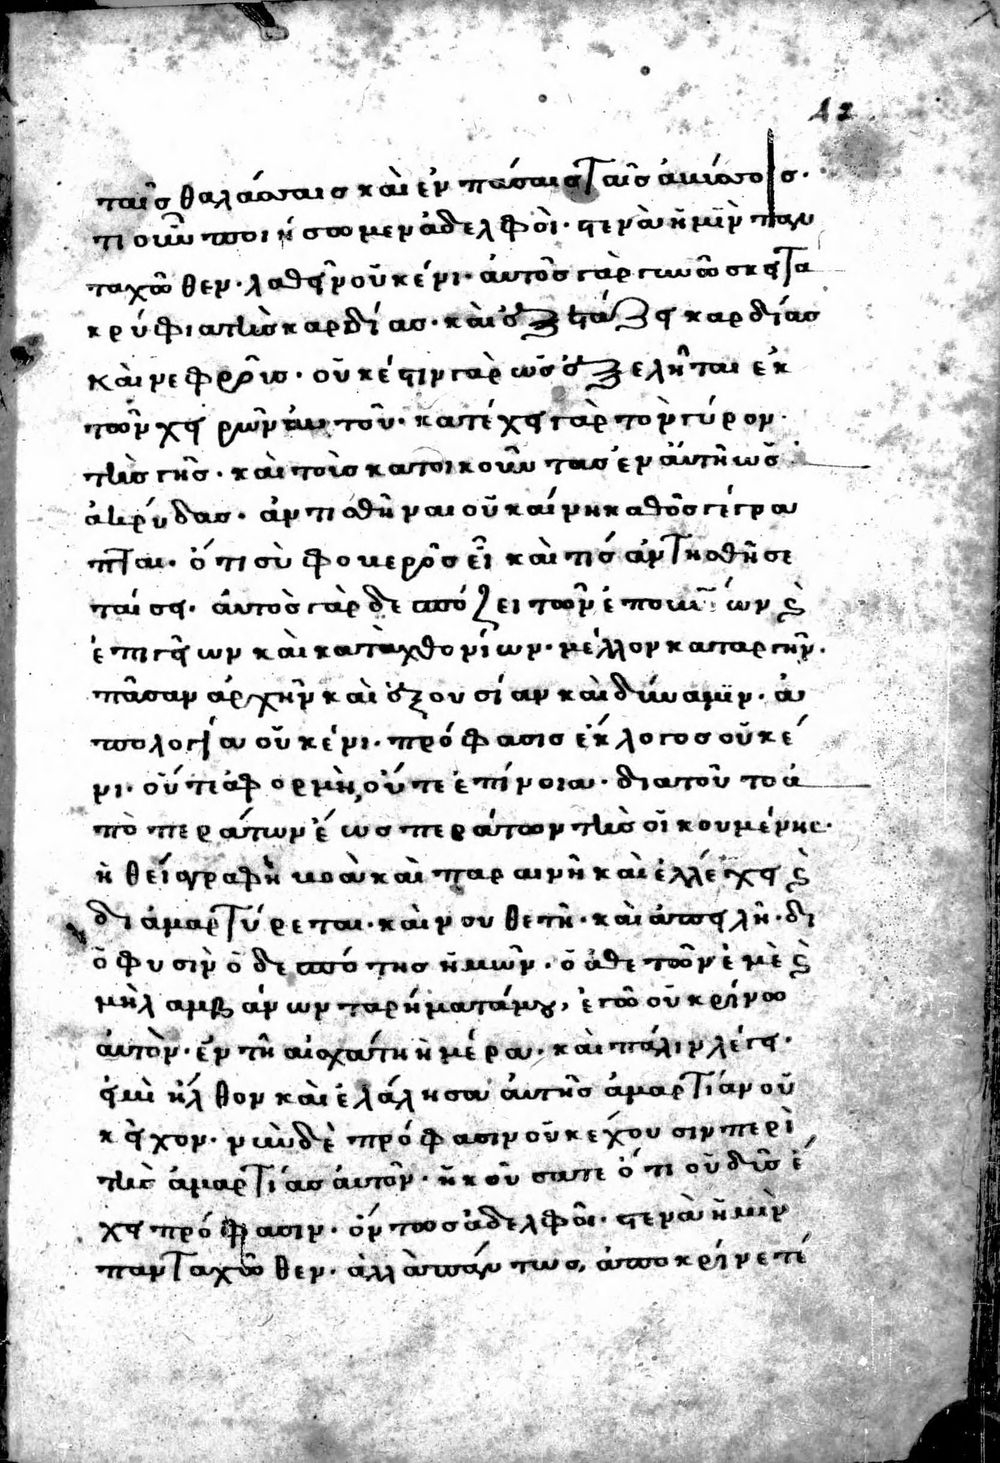 12
ταῖς θαλάσσαις καὶ ἐν πάσαις ταῖς ἀβύσσοις·
τί οὖν ποιήσωμεν ἀδελφοὶ· στενὰ ἡμῖν παν
ταχῶθεν· λαθεῖν οὐκ ἔνι· αὐτὸς γὰρ γινώσκει τὰ
κρύφια τῆς καρδίας· καὶ ἐξετάζει καρδίας
καὶ νεφροῖς· οὐκ ἔστιν γὰρ ὡς ἐξελῆται ἐκ
τῶν χειρῶν αὐτοῦ· κατέχει γὰρ τὸν γύρον
τῆς γῆς· καὶ τοὶς κατοικοῦντας ἐν αὐτῆ ὡς
ἀκρύδας· ἀντισθῆναι οὐκ αίνη καθὸς γέγρα
πται· ὅτι σὺ φοβερὸς εἶ καὶ τίς ἀντησθήσε
ταί σει· αὐτὸς γὰρ δεσπόζει τῶν ἐπουρανίων κ
ἐπιγείων καὶ καταχθονίων· μέλλον καταργῆν·
πᾶσαν ἀρχὴν καὶ ἐξουσίαν καὶ δύναμιν· ἀ
πολογία οὐκ ἔνι· πρόφασις ἐκλογος οὐκ έ
νι· οὔτε ἀφορμὴ, οὔτε ἐπίνοια· διατοῦτο ἀ
πὸ περάτων ἕως περάτων τῆς οἰκουμένης·
ἡ θεία γραφὴ βοὰ καὶ παραινῆ καὶ ἐλλέγχει κ
διαμαρτύρεται· καὶ νουθετῆ· καὶ ἀπειλῆ· δι
ὅ φυσὶν ὁ δεσπότης ἡμῶν· ὁ ἀθετῶν ἐμὲ κ
μὴ λαμβάνων τα ρήματά μου, ἐγὼ οὐ κρίνω
αὐτὸν· ἐν τῆ αἰσχάτη ἡμέρα· καὶ πάλιν λέγει·
εἰ μὶ ἦλθον καὶ ἐλάλησα αὐτῆς ἁμαρτίαν οὐ
κ εἶχον· νῦν δὲ πρόφασιν οὐκ έχουσιν περὶ
τῆς ἁμαρτίας αὐτῶν· ἠκούσατε ὅτι οὐδῖς έ
χει πρόφασιν· ὄντως ἀδελφοὶ· στενὰ ἡμὶν
πανταχῶθεν· ἀλλὰ πάντως, ἀποκρίνετέ